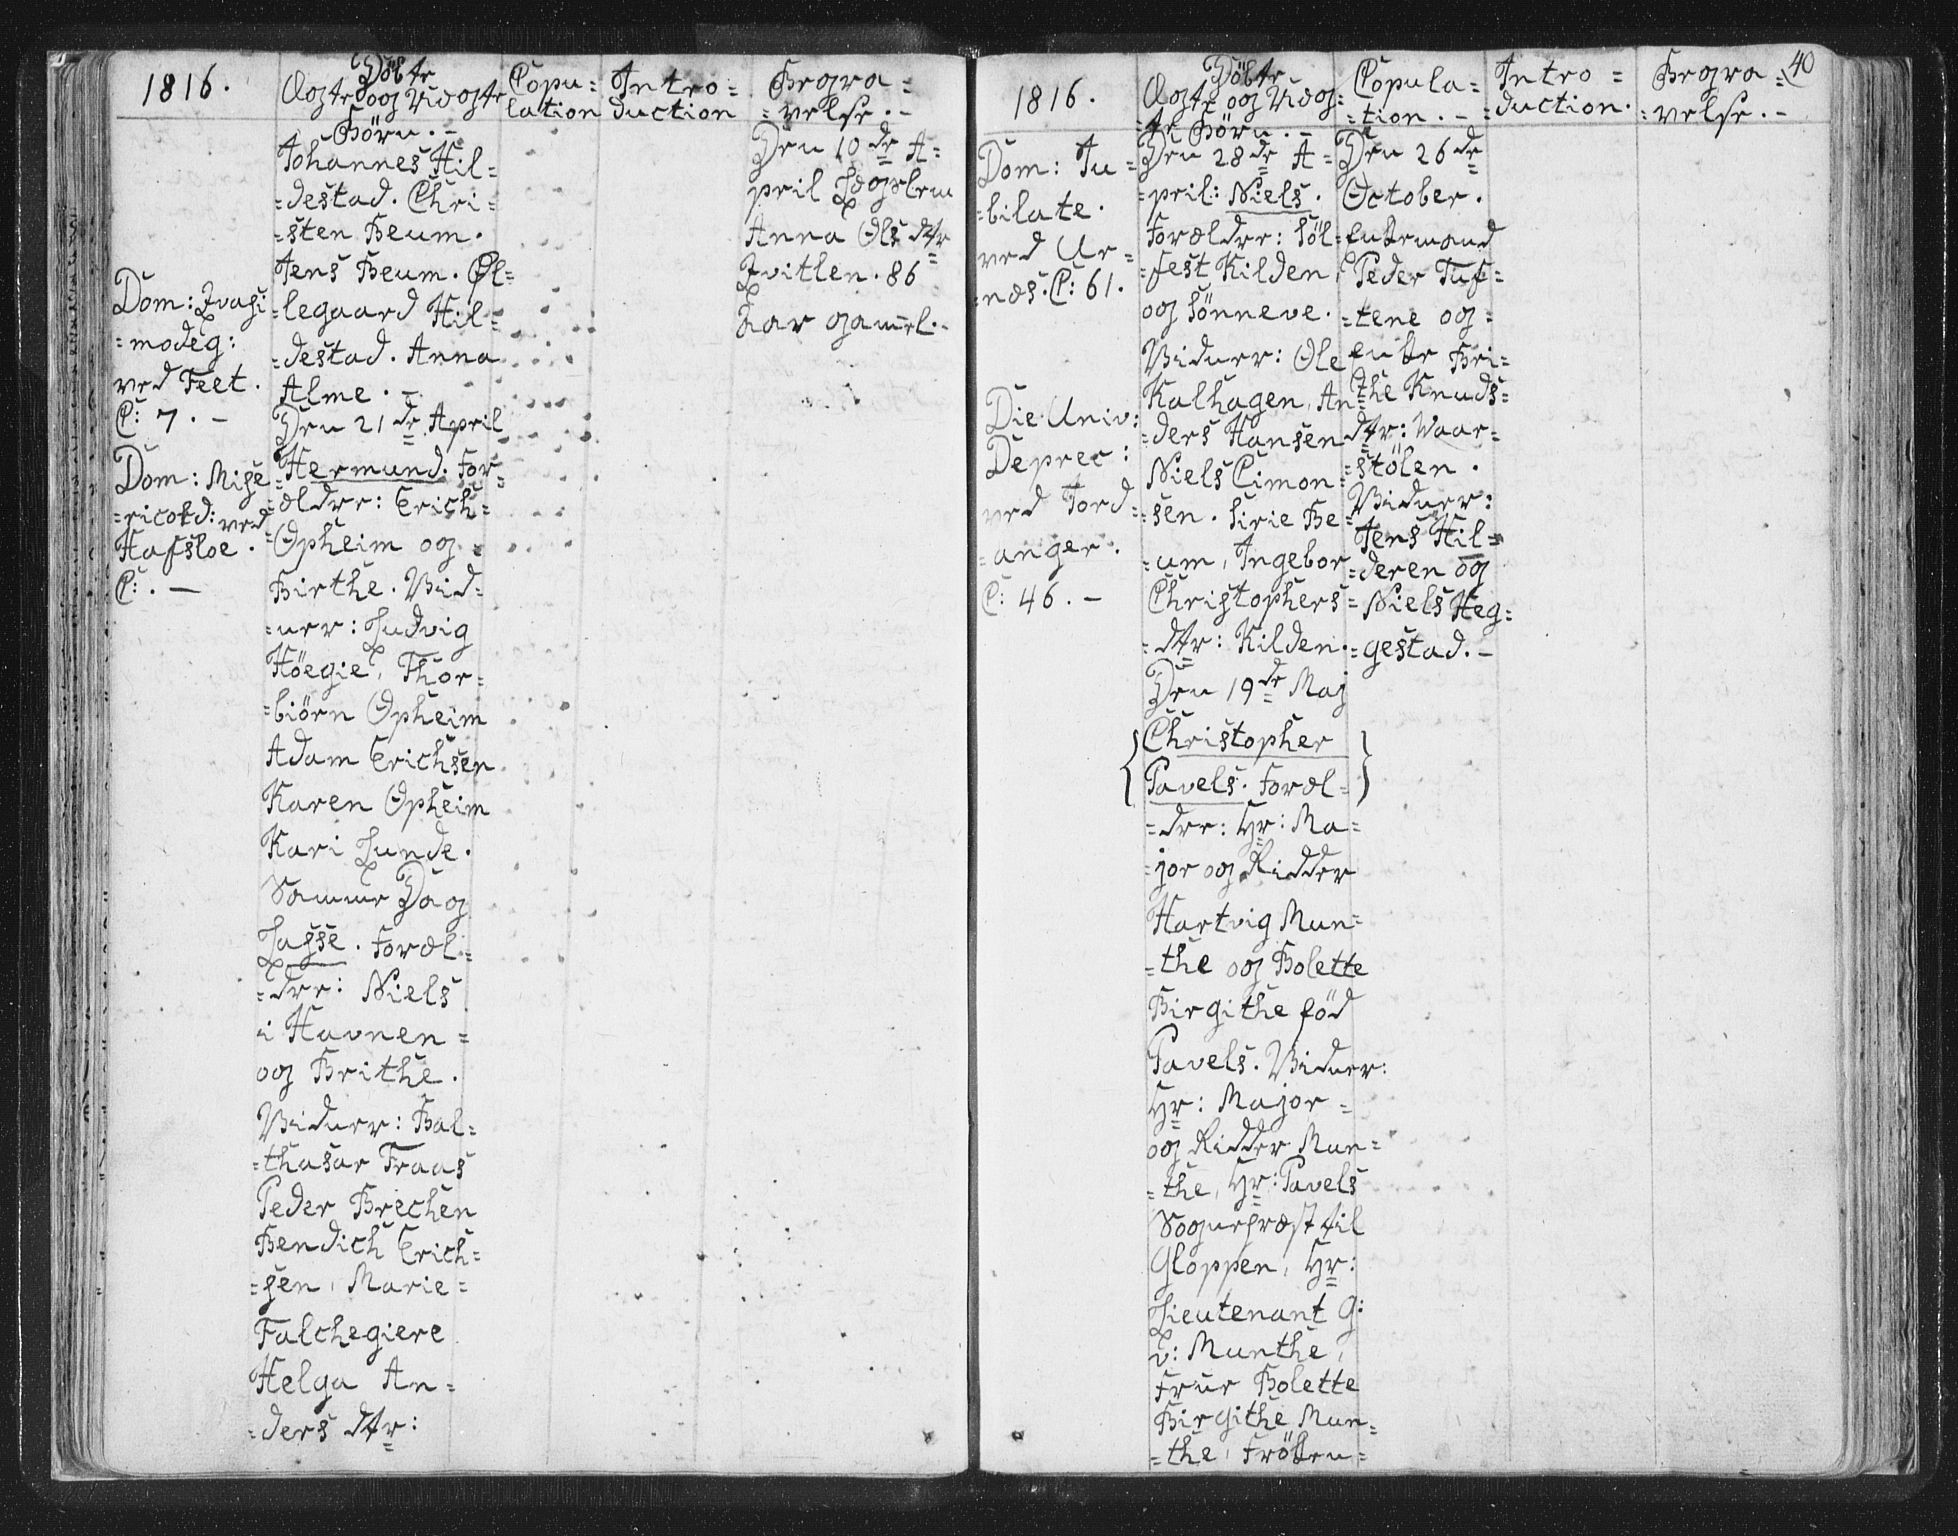 1816.
Döbte
Ægte og Uægte
Börn. -
Copu=
lation
Intro=
duction
Begra=
=velse. -
Johannes Hil=
=destad. Chri=
=sten Beum.
Jens Beum. Øl=
=legaard Hil=
=destad. Anna
Alme. -
Dom: Qvasi
=modeg:
ved Feet.
C: 7. -
Den 21de April
Hermund. For=
=ældre: Erich=
Opheim og
Birthe. Vid=
=ner: Ludvig
Höegie, Thor=
=biörn Opheim
Adam Erichsen
Karen Opheim
Kari Lunde.
Dom: Mise
=ricord: ved
Hafsloe.
C: . -
Samme Dag
Lasse. Foræl=
=dre: Niels
i Havnen=
og Brithe.
Vidner: Bal=
=thasar Fraas
Peder Brechen
Bendich Erich=
=sen, Marie=
Falchegiere
Helga An=
=ders dtr:
Den 10de A=
pril
Anna Ols dtr
Qvitlen. 86
Aar gamel. -
40
1816.
Döbte
Ægte og Uæg=
=te Börn. -
Copula=
=tion. -
Intro=
=duction.
Begra=
=velse. -
Dom: Ju=
=bilate.
ved Ur=
=næs. C: 61.
Den 28de A=
=pril: Niels.
Forældre: Söl=
=fest Kilden,
og Sönneve.
Vidner: Ole
Kalhagen, An=
=ders Hansen
Niels Cimon=
=sen. Sirie Be=
=um, Ingebor
Christophers=
=dtr: Kilden.
Die Univ:
Deprec:
ved Jord=
=anger.
C: 46. -
Den 19de Maj
Christopher
Pavels. Foræl=
=dre: Hr: Ma=
=jor og Ridder
Hartvig Mun=
=the og Bolette
Birgithe föd
Pavels. Vidner:
Hr: Major=
og Ridder Mun=
=the, Hr: Pavels
Sognepræst til
Gloppen, Hr:
Lieutenant G:
v: Munthe,
Frue Bolette
Birgithe Mun=
=the, Fröken=
Den 26de
October.
Enkemand
Peder Tuf=
=tene og=
Enke Bri=
=the Knuds=
dtr: Waar=
=stölen.
Vidner:
Jens Hil=
=deren og
Niels Heg=
=gestad. -